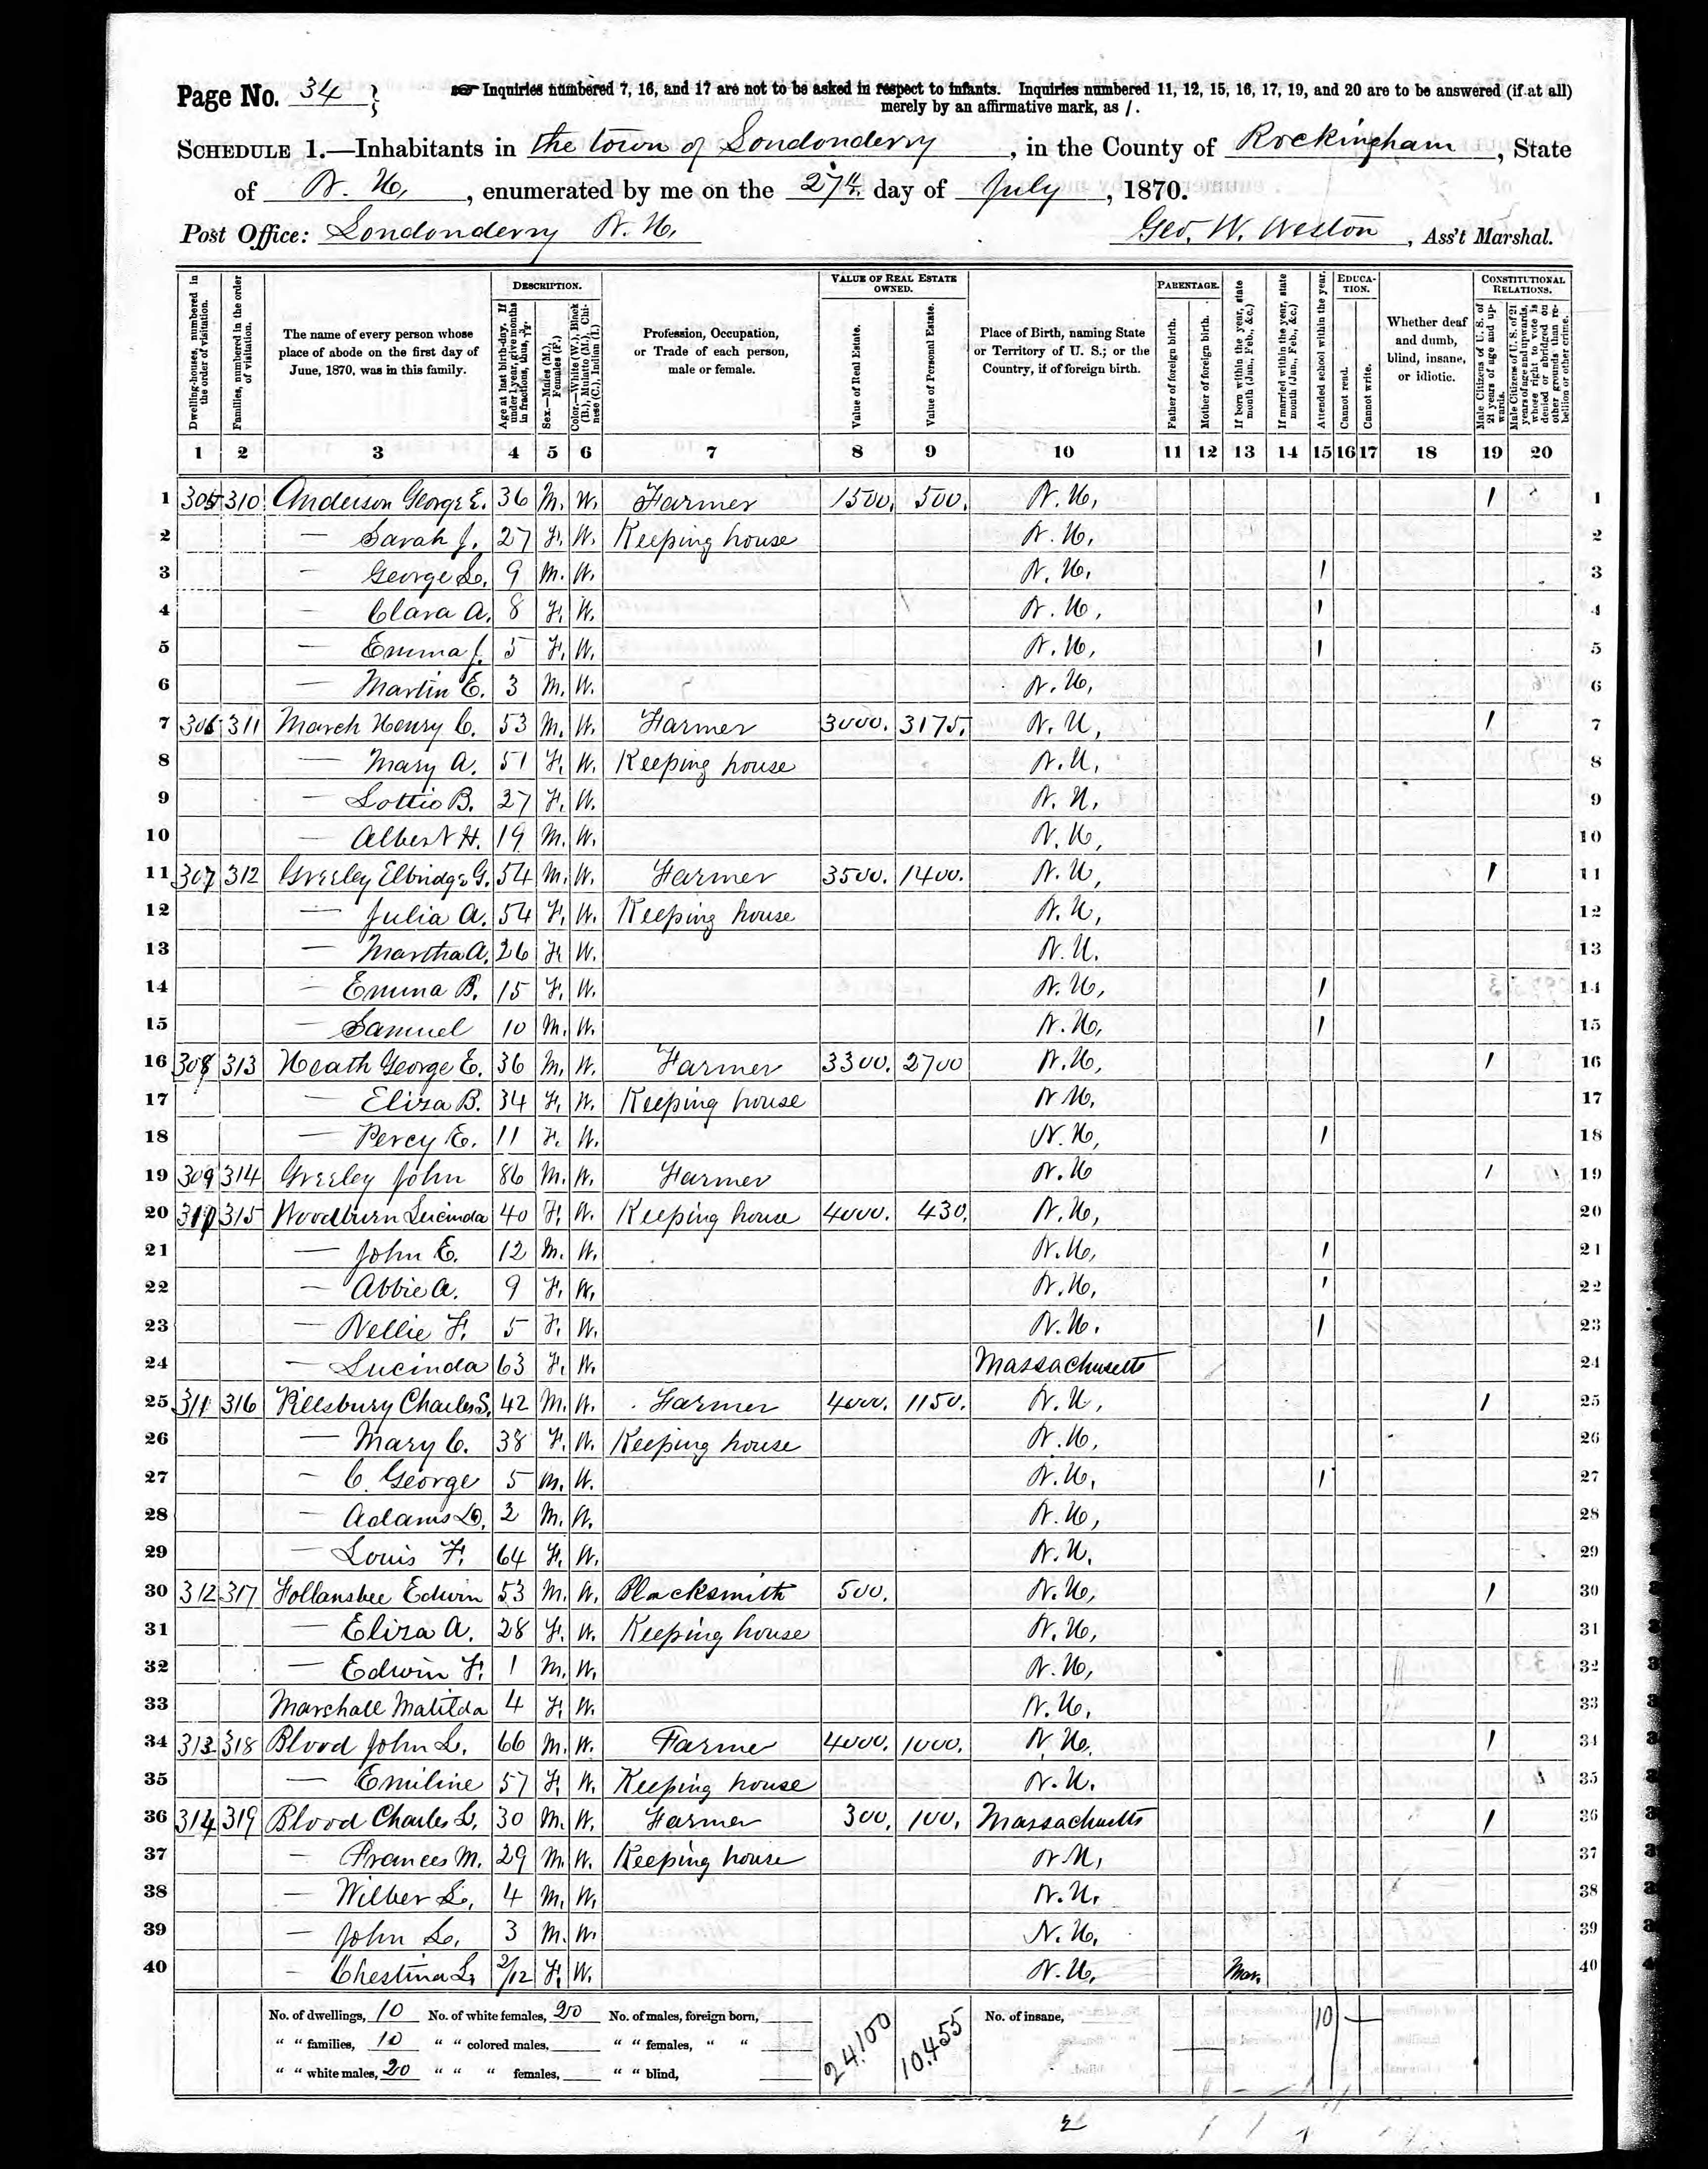 Page No. 34 } Inquiries numbered 7, 16, and 17 are not to be asked in respect to infants. Inquiries numbered 11, 12, 15, 16, 17, 19, and 20 are to be answered (if at all)
merely by an affirmative mark, as /.
SCHEDULE 1.—Inhabitants in the town of Londonderry, in the County of Rockingham, State
of N. H., enumerated by me on the 27th day of July, 1870.
Post Office: Londonderry N. H. Geo. W. Weston, Ass't Marshal.
Dwelling-houses, numbered in the order of visitation.
Families, numbered in the order of visitation.
The name of every person whose place of abode on the first day of June, 1870, was in this family.
DESCRIPTION.
Age at last birth-day. If under 1 year, give months in fractions, thus, 3/12.
Sex.—Males (M.), Females (F.)
Color.—White (W.), Black (B.), Mulatto (M.), Chinese (C.), Indian (I.)
Profession, Occupation, or Trade of each person, male or female.
VALUE OF REAL ESTATE OWNED.
Value of Real Estate.
Value of Personal Estate.
Place of Birth, naming State or Territory of U. S.; or the Country, if of foreign birth.
PARENTAGE.
Father of foreign birth.
Mother of foreign birth.
If born within the year, state month (Jan., Feb., &c.)
If married within the year, state month (Jan., Feb., &c.)
Attended school within the year.
EDUCATION.
Cannot read.
Cannot write.
Whether deaf and dumb, blind, insane, or idiotic.
CONSTITUTIONAL RELATIONS.
Male Citizens of U. S. of 21 years of age and upwards.
Male Citizens of U. S. of 21 years of age and upwards, whose right to vote is denied or abridged on other grounds than rebellion or other crime.
1 2 3 4 5 6 7 8 9 10 11 12 13 14 15 16 17 18 19 20
1 305 310 Anderson George E. 36 M. W. Farmer 1500. 500. N. H. / 1
2 — Sarah J. 27 F. W. Keeping house N. H. 2
3 — George L. 9 M. W. N. H. / 3
4 — Clara A. 8 F. W. N. H. / 4
5 — Emma J. 5 F. W. N. H. / 5
6 — Martin E. 3 M. W. N. H. 6
7 306 311 March Henry C. 53 M. W. Farmer 3000. 3175. N. H. / 7
8 — Mary A. 51 F. W. Keeping house N. H. 8
9 — Lottie B. 27 F. W. N. H. 9
10 — Albert H. 19 M. W. N. H. 10
11 307 312 Greeley Elbridge G. 54 M. W. Farmer 3500. 1400. N. H. / 11
12 — Julia A. 54 F. W. Keeping house N. H. 12
13 — Martha A. 26 F. W. N. H. 13
14 — Emma B. 15 F. W. N. H. / 14
15 — Samuel 10 M. W. N. H. / 15
16 308 313 Heath George E. 36 M. W. Farmer 3300. 2700 N. H. / 16
17 — Eliza B. 34 F. W. Keeping house N H. 17
18 — Percy E. 11 F. W. N. H. / 18
19 309 314 Greeley John 86 M. W. Farmer N. H / 19
20 310 315 Woodburn Lucinda 40 F. W. Keeping house 4000. 430. N. H. 20
21 — John E. 12 M. W. N. H. / 21
22 — Abbie A. 9 F. W. N. H. / 22
23 — Nellie F. 5 F. W. N. H. / 23
24 — Lucinda 63 F. W. Massachusetts 24
25 311 316 Pillsbury Charles S. 42 M. W. Farmer 4000. 1150. N. H. / 25
26 — Mary C. 38 F. W. Keeping house N. H. 26
27 — C. George 5 M. W. N. H. / 27
28 — Adams D. 2 M. W. N. H. 28
29 — Louis F. 64 F. W. N. H. 29
30 312 317 Follansbee Edwin 53 M. W. Blacksmith 500. N. H. / 30
31 — Eliza A. 28 F. W. Keeping house N. H. 31
32 — Edwin F. 1 M. W. N. H. 32
33 Marshall Matilda 4 F. W. N. H. 33
34 313 318 Blood John L. 66 M. W. Farmer 4000. 1000. N. H. / 34
35 — Emiline 57 F. W. Keeping house N. H. 35
36 314 319 Blood Charles L. 30 M. W. Farmer 300. 100. Massachusetts / 36
37 — Frances M. 29 M. W. Keeping house N H. 37
38 — Wilber L. 4 M. W. N. H. 38
39 — John L. 3 M. W. N. H. 39
40 — Chestina L. 2/12 F. W. N. H. Mar. 40
No. of dwellings, 10 No. of white females, 20 No. of males, foreign born, 24,100 10,455 No. of insane, 10
" " families, 10 " " colored males, " " females, " "
" " white males, 20 " " " females, " " blind,
2